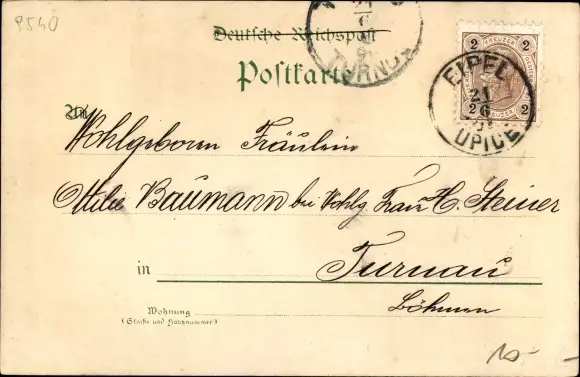 P540
Deutsche Reichspost
TURNOV
Postkarte
2 2
KREUZER
2 2
EIPEL
21
6
ÚPICE
An
Wohlgeboren Fräulein
Ottilie Baumann bei Wohlg Frau H. Steiner
in Turnau
Böhmen
Wohnung
(Straße und Hausnummer)